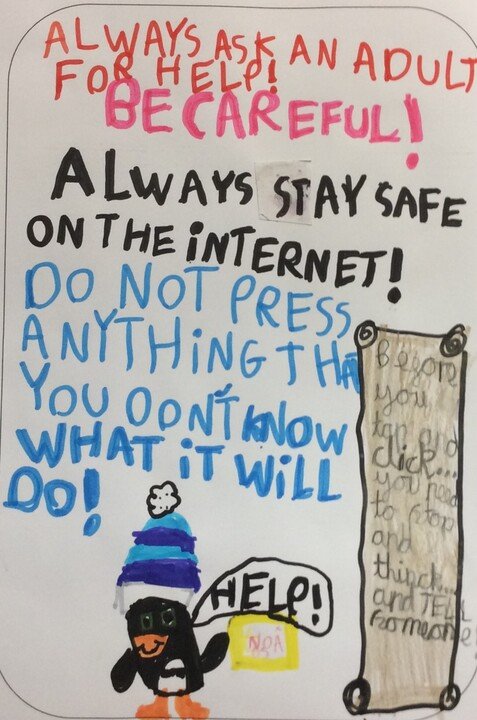 ALWAYS ASK AN ADULT
FOR HELP!
BE CAREFUL!
ALWAYS STAY SAFE
ON THE iNTERNET!
DO NOT PRESS
ANYTHiNG THAT
YOU DON'T KNOW
WHAT iT WiLL
DO!
Before
you
tap and
click...
you need
to stop
and
thinck...
and TELL
someone!
HELP!